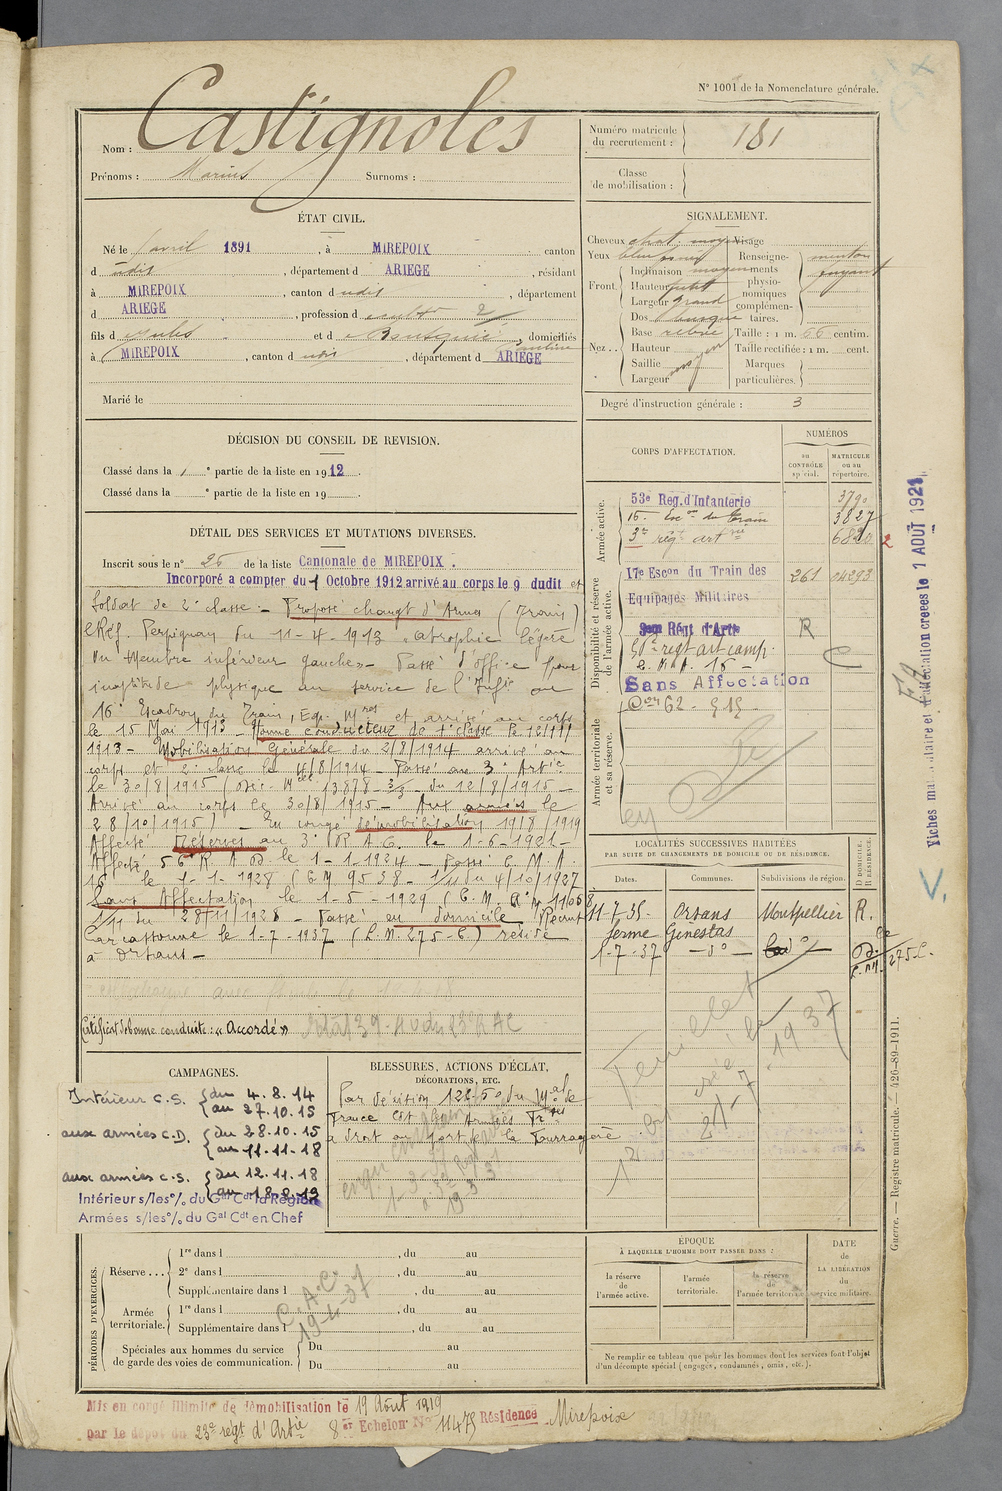 N° 1001 de la Nomenclature générale.
Nom : Castignoles
Prénoms : Marius Surnoms :
Numéro matricule du recrutement : 181
Classe de mobilisation :
ÉTAT CIVIL.
Né le 1 avril 1891, à MIREPOIX canton
d udit, département d ARIEGE, résidant
à MIREPOIX, canton d udit, département
d ARIEGE, profession d cultr 2
fils d Jules et d Bousquié, domiciliés
à MIREPOIX, canton d udit, département d ARIEGE
Marié le
SIGNALEMENT.
Cheveux chat. moy Visage
Yeux bleu
Front. Inclinaison moyen
Hauteur petit
Largeur grand
Nez .. Dos busqué
Base relevé
Hauteur
Saillie moyen
Largeur
Renseignements physionomiques complémentaires. menton fuyant
Taille : 1 m. 66 centim.
Taille rectifiée : 1 m. cent.
Marques particulières.
Degré d'instruction générale : 3
DÉCISION DU CONSEIL DE REVISION.
Classé dans la 1 ° partie de la liste en 1912.
Classé dans la ° partie de la liste en 19
DÉTAIL DES SERVICES ET MUTATIONS DIVERSES.
Inscrit sous le n° 25 de la liste Cantonale de MIREPOIX.
Incorporé a compter du 1 Octobre 1912 arrivé au corps le 9 dudit et
Soldat de 2e classe. – Proposé changt d'Arme (Train)
C. Réf. Perpignan du 11-4-1913 "atrophie légère
du membre inférieur gauche" – Passé d'office pour
inaptitude physique au service de l'Infie au
16e Escadron du Train, Eq. Mres et arrivé au corps
le 15 Mai 1913 – Nommé conducteur de 1e classe le
1913 – Mobilisation Générale du 2/8/1914 arrivé au
corps et 2e classe le 4/8/1914 – Passé au 3e Artie
le 30/8/1915 (Déc. Melle 13878-3/3 du 12/8/1915 –
Arrivé au corps le 30/8/1915 – Aux armées le
28/10/1915) – En congé démobilisation 19/8/1919
Affecté Réserves au 3e R.A.C. le 1-6-1921 –
Affecté 56e R.A.D. le 1-1-1924 – Passé C.M.A.
16 le 1-1-1928 (C.M. 9538 – 1/11 du 4/10/1927
Sans Affectation le 1-5-1929 (C.M. n° 11068
1/11 du 28/11/1928 – Passé en domicile Recrut
Carcassonne le 1-7-1937 (L.M. 275-C.) réside
à Orsans –
Certificat de bonne conduite : « Accordé »
CORPS D'AFFECTATION.
NUMÉROS
au CONTRÔLE spécial.
MATRICULE ou au répertoire.
Armée active.
53e Reg. d'Infanterie 3790
16e Escon du Train 3827
3e régt artrie 6820 2
Disponibilité et réserve de l'armée active.
17e Escon du Train des Equipages Militaires 261 04293
Régt d'Artie R
56e regt art camp.
C.M.A. 16 –
Sans Affectation
Armée territoriale et sa réserve.
Fiches matriculaire et d'affectation créées le 1 AOUT 1921
LOCALITÉS SUCCESSIVES HABITÉES
PAR SUITE DE CHANGEMENTS DE DOMICILE OU DE RÉSIDENCE.
Dates. Communes. Subdivisions de région. D DOMICILE. R RÉSIDENCE.
11-7-35. Orsans Montpellier R.
ferme Ginestas
1-7-37 – do – 275-C.
Feuillet
1937
21-7
CAMPAGNES.
Intérieur C.S. du 4.8.14 au 27.10.15
aux armées C.D. du 28.10.15 au 11.11.18
aux armées C.S. du 12.11.18 au 18.8.19
Intérieur s/les % du Gal Cdt la Région
Armées s/les % du Gal Cdt en Chef
BLESSURES, ACTIONS D'ÉCLAT,
DÉCORATIONS, ETC.
Par décision du Mal de
France Cdt Armées Frses
a droit au port de la Fourragère
PÉRIODES D'EXERCICES.
Réserve ... 1re dans l , du au
2e dans l , du au
Supplémentaire dans l , du au
Armée territoriale. 1re dans l , du au
Supplémentaire dans l , du au
Spéciales aux hommes du service de garde des voies de communication. Du au
Du au
C.A.C.
19-4-37
ÉPOQUE
À LAQUELLE L'HOMME DOIT PASSER DANS :
la réserve de l'armée active.
l'armée territoriale.
la réserve de l'armée territoriale
DATE de LA LIBÉRATION du service militaire.
Ne remplir ce tableau que pour les hommes dont les services font l'objet d'un décompte spécial (engagés, condamnés, omis, etc.).
Guerre. — Registre matricule. — 426-89-1911.
Mis en congé illimité de démobilisation le 19 Août 1919
par le dépôt du 23e régt d'Artie 8e Echelon No 11475 Résidence Mirepoix